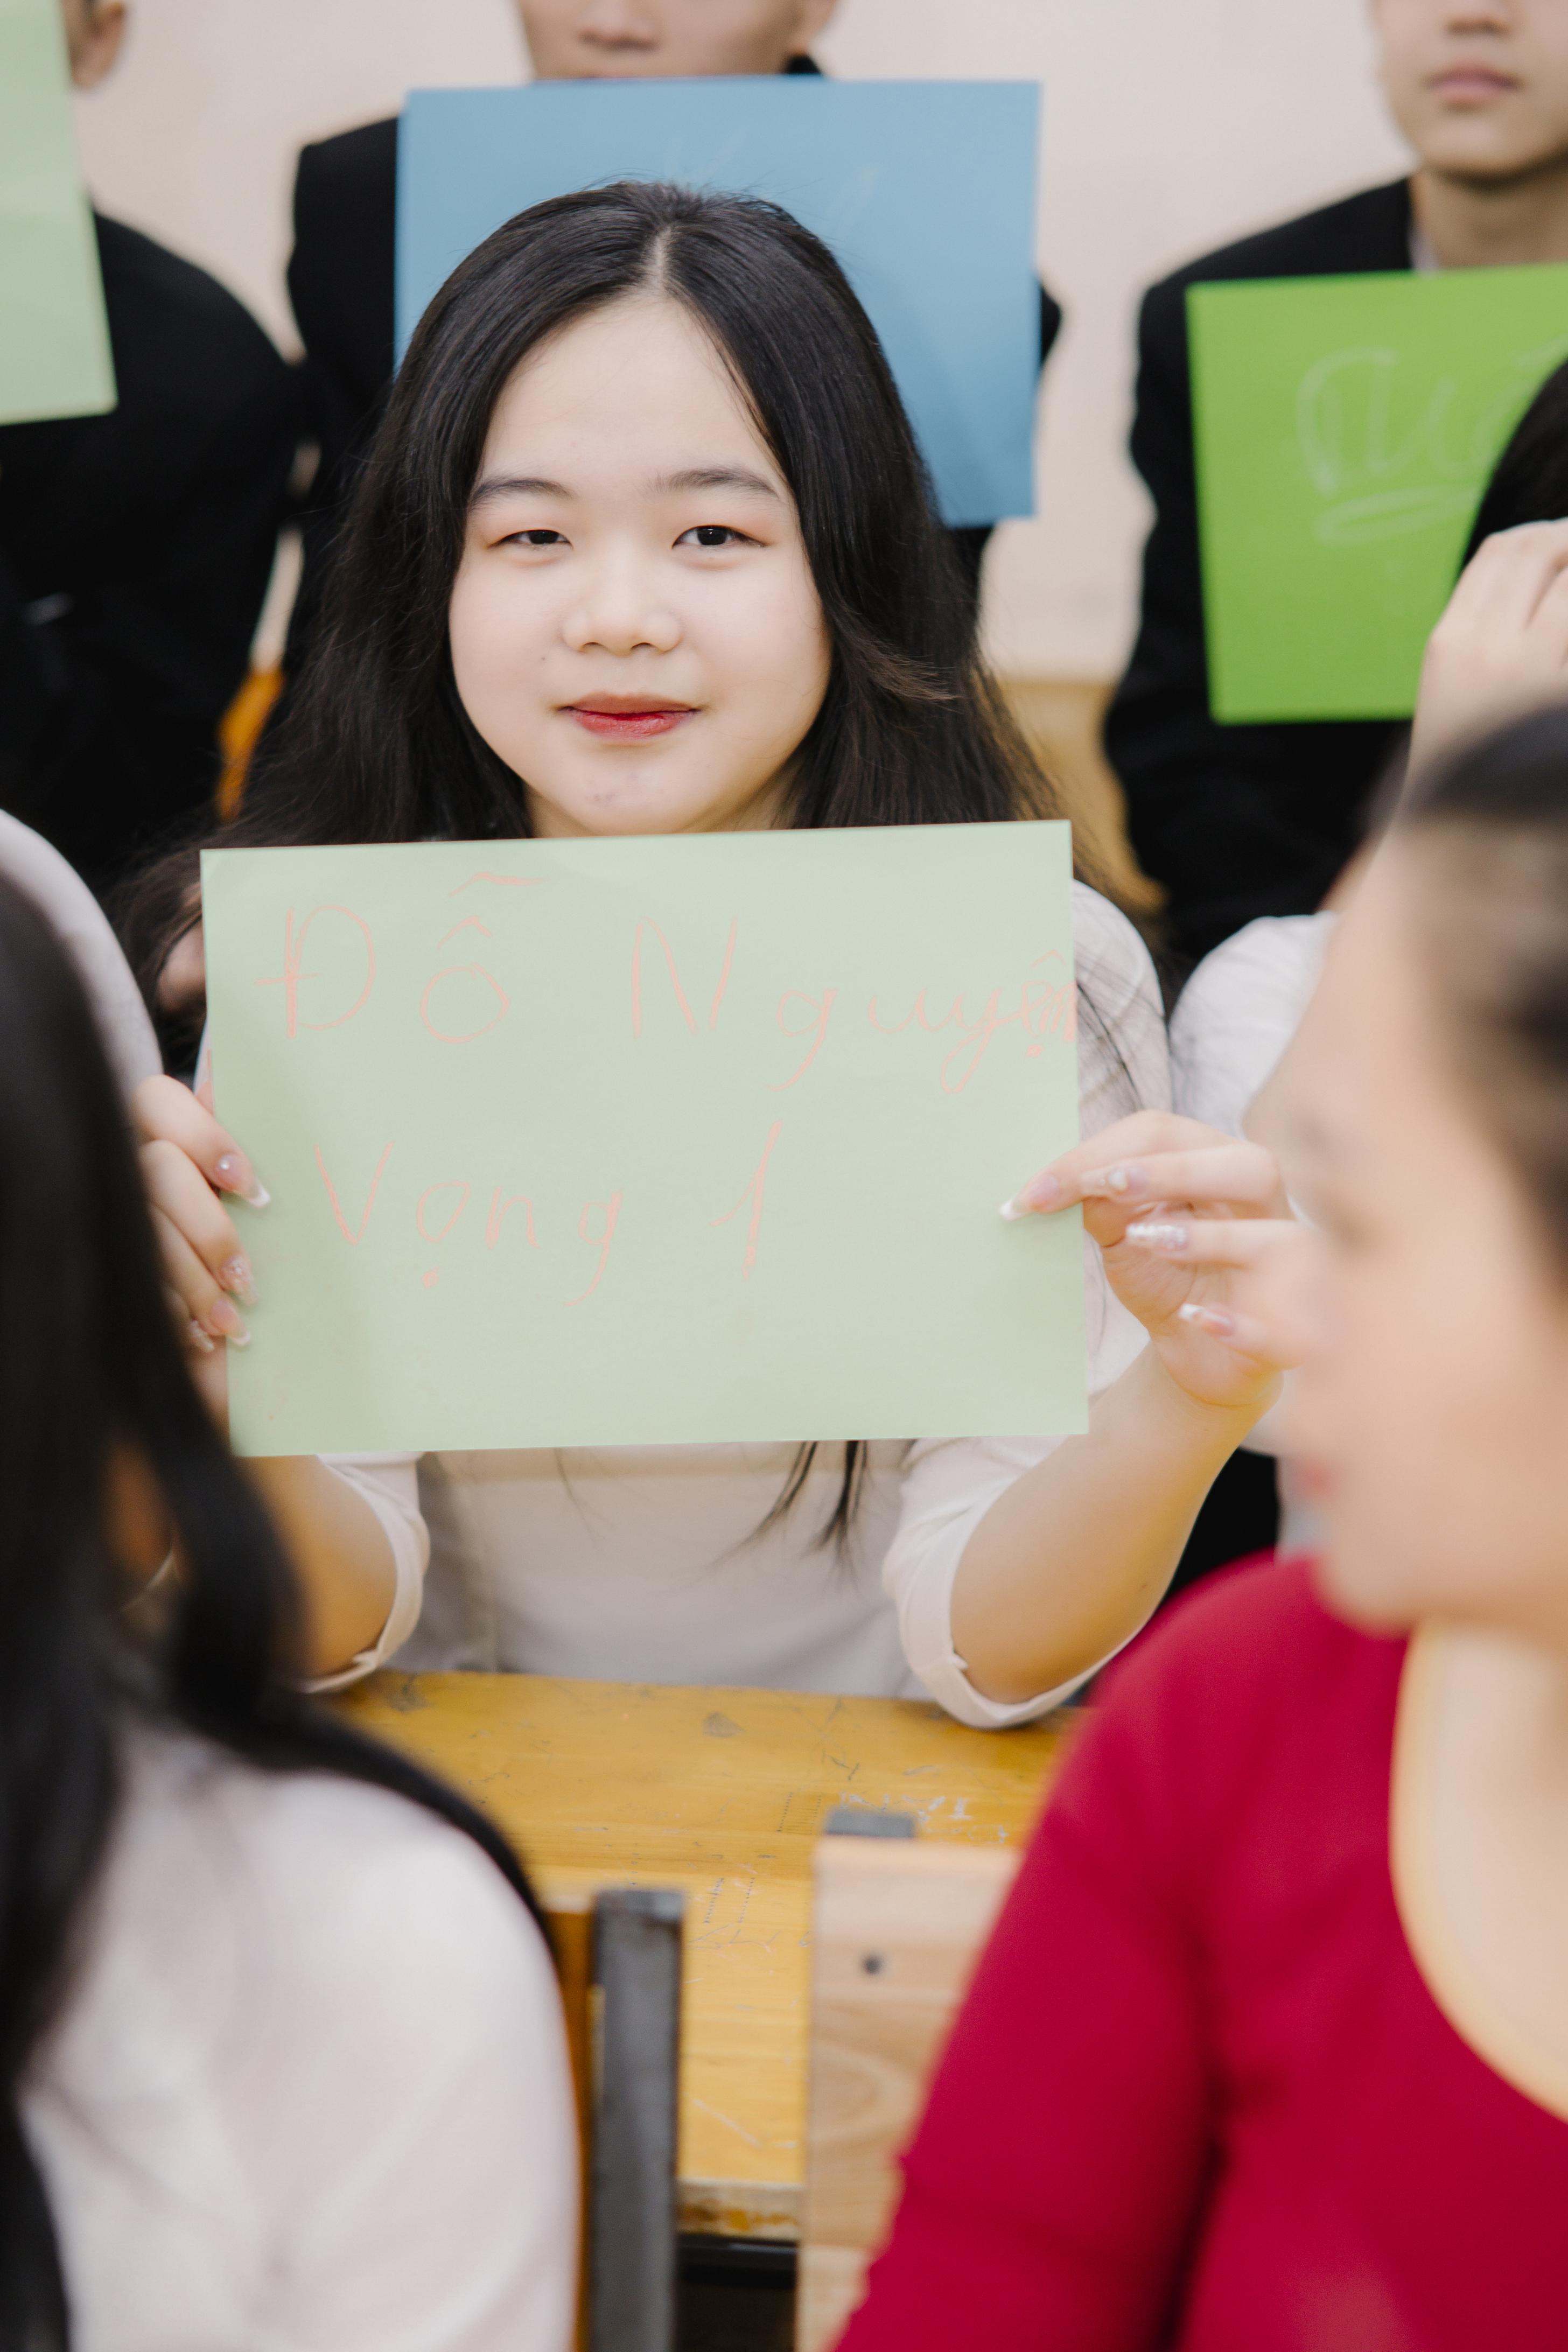 Đỗ Nguyện
Vọng 1